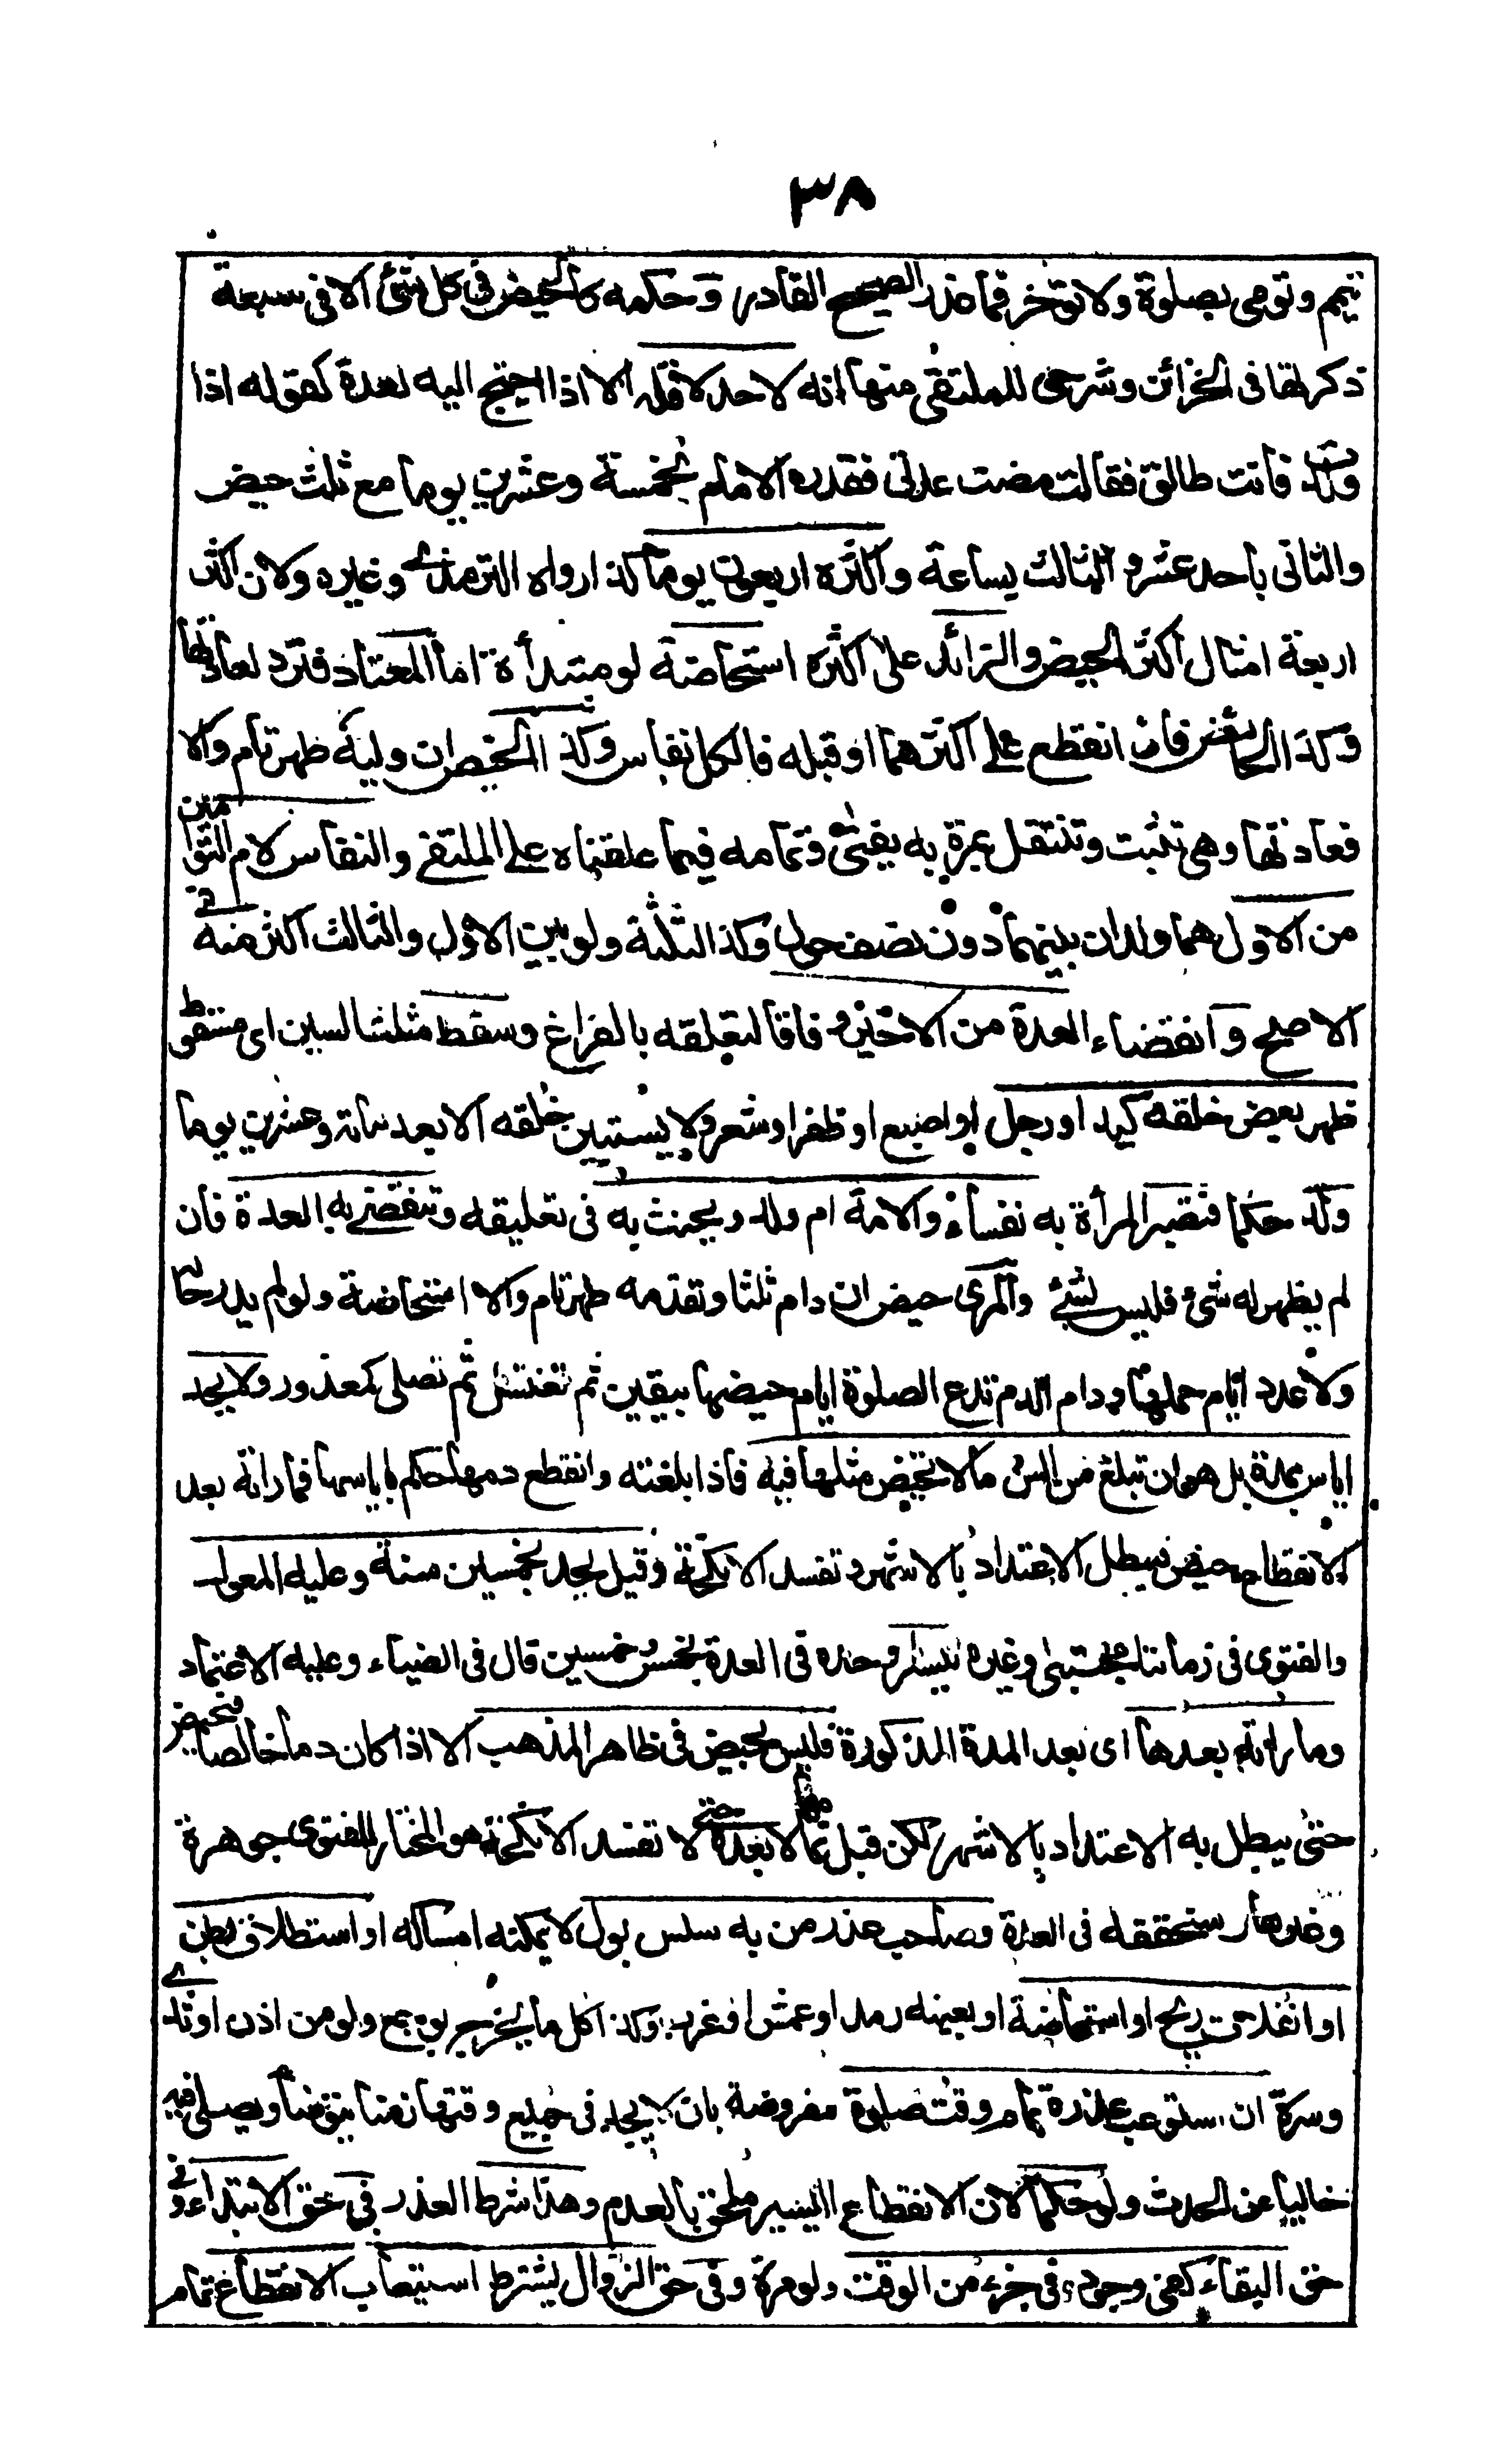 ٣٨
تتيمم وتومى بصلوة ولا توخر فما عذر الصحيح القادر وحكمه كالحيض فى كل شئ الا فى سبعة
ذكرتها فى الخزائن وشرحى للملتقى منها انه لا حد لاقله الا اذا احتيج اليه لعدة كقوله اذا
ولدت فانت طالق فقالت مضت عدتى فقدره الامام بخمسة وعشرين يوما مع ثلث حيض
والثانى باحد عشر والثالث بساعة واكثره اربعون يوما كذا رواه الترمذى وغيره ولان اكثره
اربعة امثال اكثر الحيض والزائد على اكثره استحاضة لو مبتدأة اما المعتادة فترد لعادتها
وكذا الحائض فان انقطع على اكثرهما او قبله فالكل نفاس وكذا الحيض ان وليه طهر تام والا
فعادتها وهى تثبت وتنتقل بمرة به يفتى وتمامه فيما علقناه على الملتقى والنفاس لام التوأمين
من الاول هما ولدان بينهما دون نصف حول وكذا الثلثة ولو بين الاول والثالث اكثر منه فى
الاصح وانقضاء العدة من الاخير وفاقا لتعلقه بالفراغ وسقط مثلث السين اى مسقوط
ظهر بعض خلقه كيد او رجل او اصبع او ظفر او شعر ولا يستبين خلقه الا بعد مائة وعشرين يوما
ولد حكما فتصير المرأة به نفساء والامة ام ولد ويحنث به فى تعليقه وتنقضى به العدة فان
لم يظهر له شئ فليس بشئ والمرى حيض ان دام ثلثا وتقدمه طهر تام والا استحاضة ولو لم يدر حاله
ولا عدد ايام حملها ودام الدم تدع الصلوة ايام حيضها بيقين ثم تغتسل ثم تصلى كمعذور ولا يحد
اياس بمدة بل هو ان تبلغ من السن ما لا تحيض مثلها فيه فاذا بلغته وانقطع دمها حكم باياسها فما رأته بعد
الانقطاع حيض فيبطل الاعتداد بالاشهر وتفسد الانكحة وقيل يحد بخمسين سنة وعليه المعول
والفتوى فى زماننا مجتبى وغيره تيسيرا وحده فى العدة بخمس وخمسين قال فى الضياء وعليه الاعتماد
وما رأته بعدها اى بعد المدة المذكورة فليس بحيض فى ظاهر المذهب الا اذا كان دما خالصا فحيض
حتى يبطل به الاعتداد بالاشهر لكن قبل تمامها لا بعده حتى لا تفسد الانكحة هو المختار للفتوى جوهرة
وغيرها وسنحققه فى العدة وصاحب عذر من به سلس بول لا يمكنه امساكه او استطلاق بطن
او انفلات ريح او استحاضة او بعينه رمد او عمش او غرب وكذا كل ما يخرج بوجع ولو من اذن او ثدى
وسرة ان استوعب عذره تمام وقت صلوة مفروضة بان لا يجد فى جميع وقتها زمنا يتوضأ ويصلى فيه
خاليا عن الحدث ولو حكما لان الانقطاع اليسير ملحق بالعدم وهذا شرط العذر فى حق الابتداء وفى
حق البقاء كفى وجوده فى جزء من الوقت ولو مرة وفى حق الزوال يشترط استيعاب الانقطاع تمام